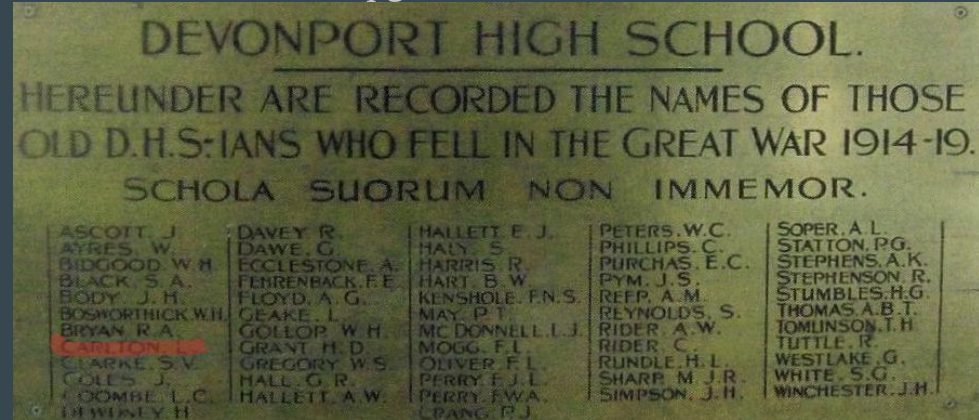 DEVONPORT HIGH SCHOOL.
HEREUNDER ARE RECORDED THE NAMES OF THOSE
OLD D.H.S:-IANS WHO FELL IN THE GREAT WAR 1914-19.
SCHOLA SUORUM NON IMMEMOR.
ASCOTT. J
AYRES. W.
BIDGOOD. W.H.
BLACK. S.A.
BODY. J.H.
BOSWORTHICK. W.H.
BRYAN. R.A.
CARLTON. L.
CLARKE. S.V.
COLES. J.
COOMBE. L.C.
DEWDNEY. H
DAVEY R.
DAWE. G.
ECCLESTONE. A.
FEHRENBACK. F.E.
FLOYD. A.G.
GEAKE. L.
GOLLOP. W.H.
GRANT. H.D.
GREGORY. W.S.
HALL. G.R.
HALLETT. A.W.
HALLETT. E.J.
HALY. S.
HARRIS. R.
HART. B.W.
KENSHOLE. F.N.S.
MAY. P.T.
MC DONNELL. L.J.
MOGG. F.L.
OLIVER. F.L.
PERRY. F.J.L.
PERRY. F.W.A.
CRANG. P.J.
PETERS. W.C.
PHILLIPS. C.
PURCHAS. E.C.
PYM. J.S.
REEP. A.M.
REYNOLDS. S.
RIDER. A.W.
RIDER. C.
RUNDLE. H.L.
SHARP. M.J.R.
SIMPSON. J.H.
SOPER. A.L.
STATTON. P.G.
STEPHENS. A.K.
STEPHENSON. R.
STUMBLES. H.G.
THOMAS. A.B.T.
TOMLINSON. T.H
TUTTLE. R.
WESTLAKE. G.
WHITE. S.G.
WINCHESTER. J.H.